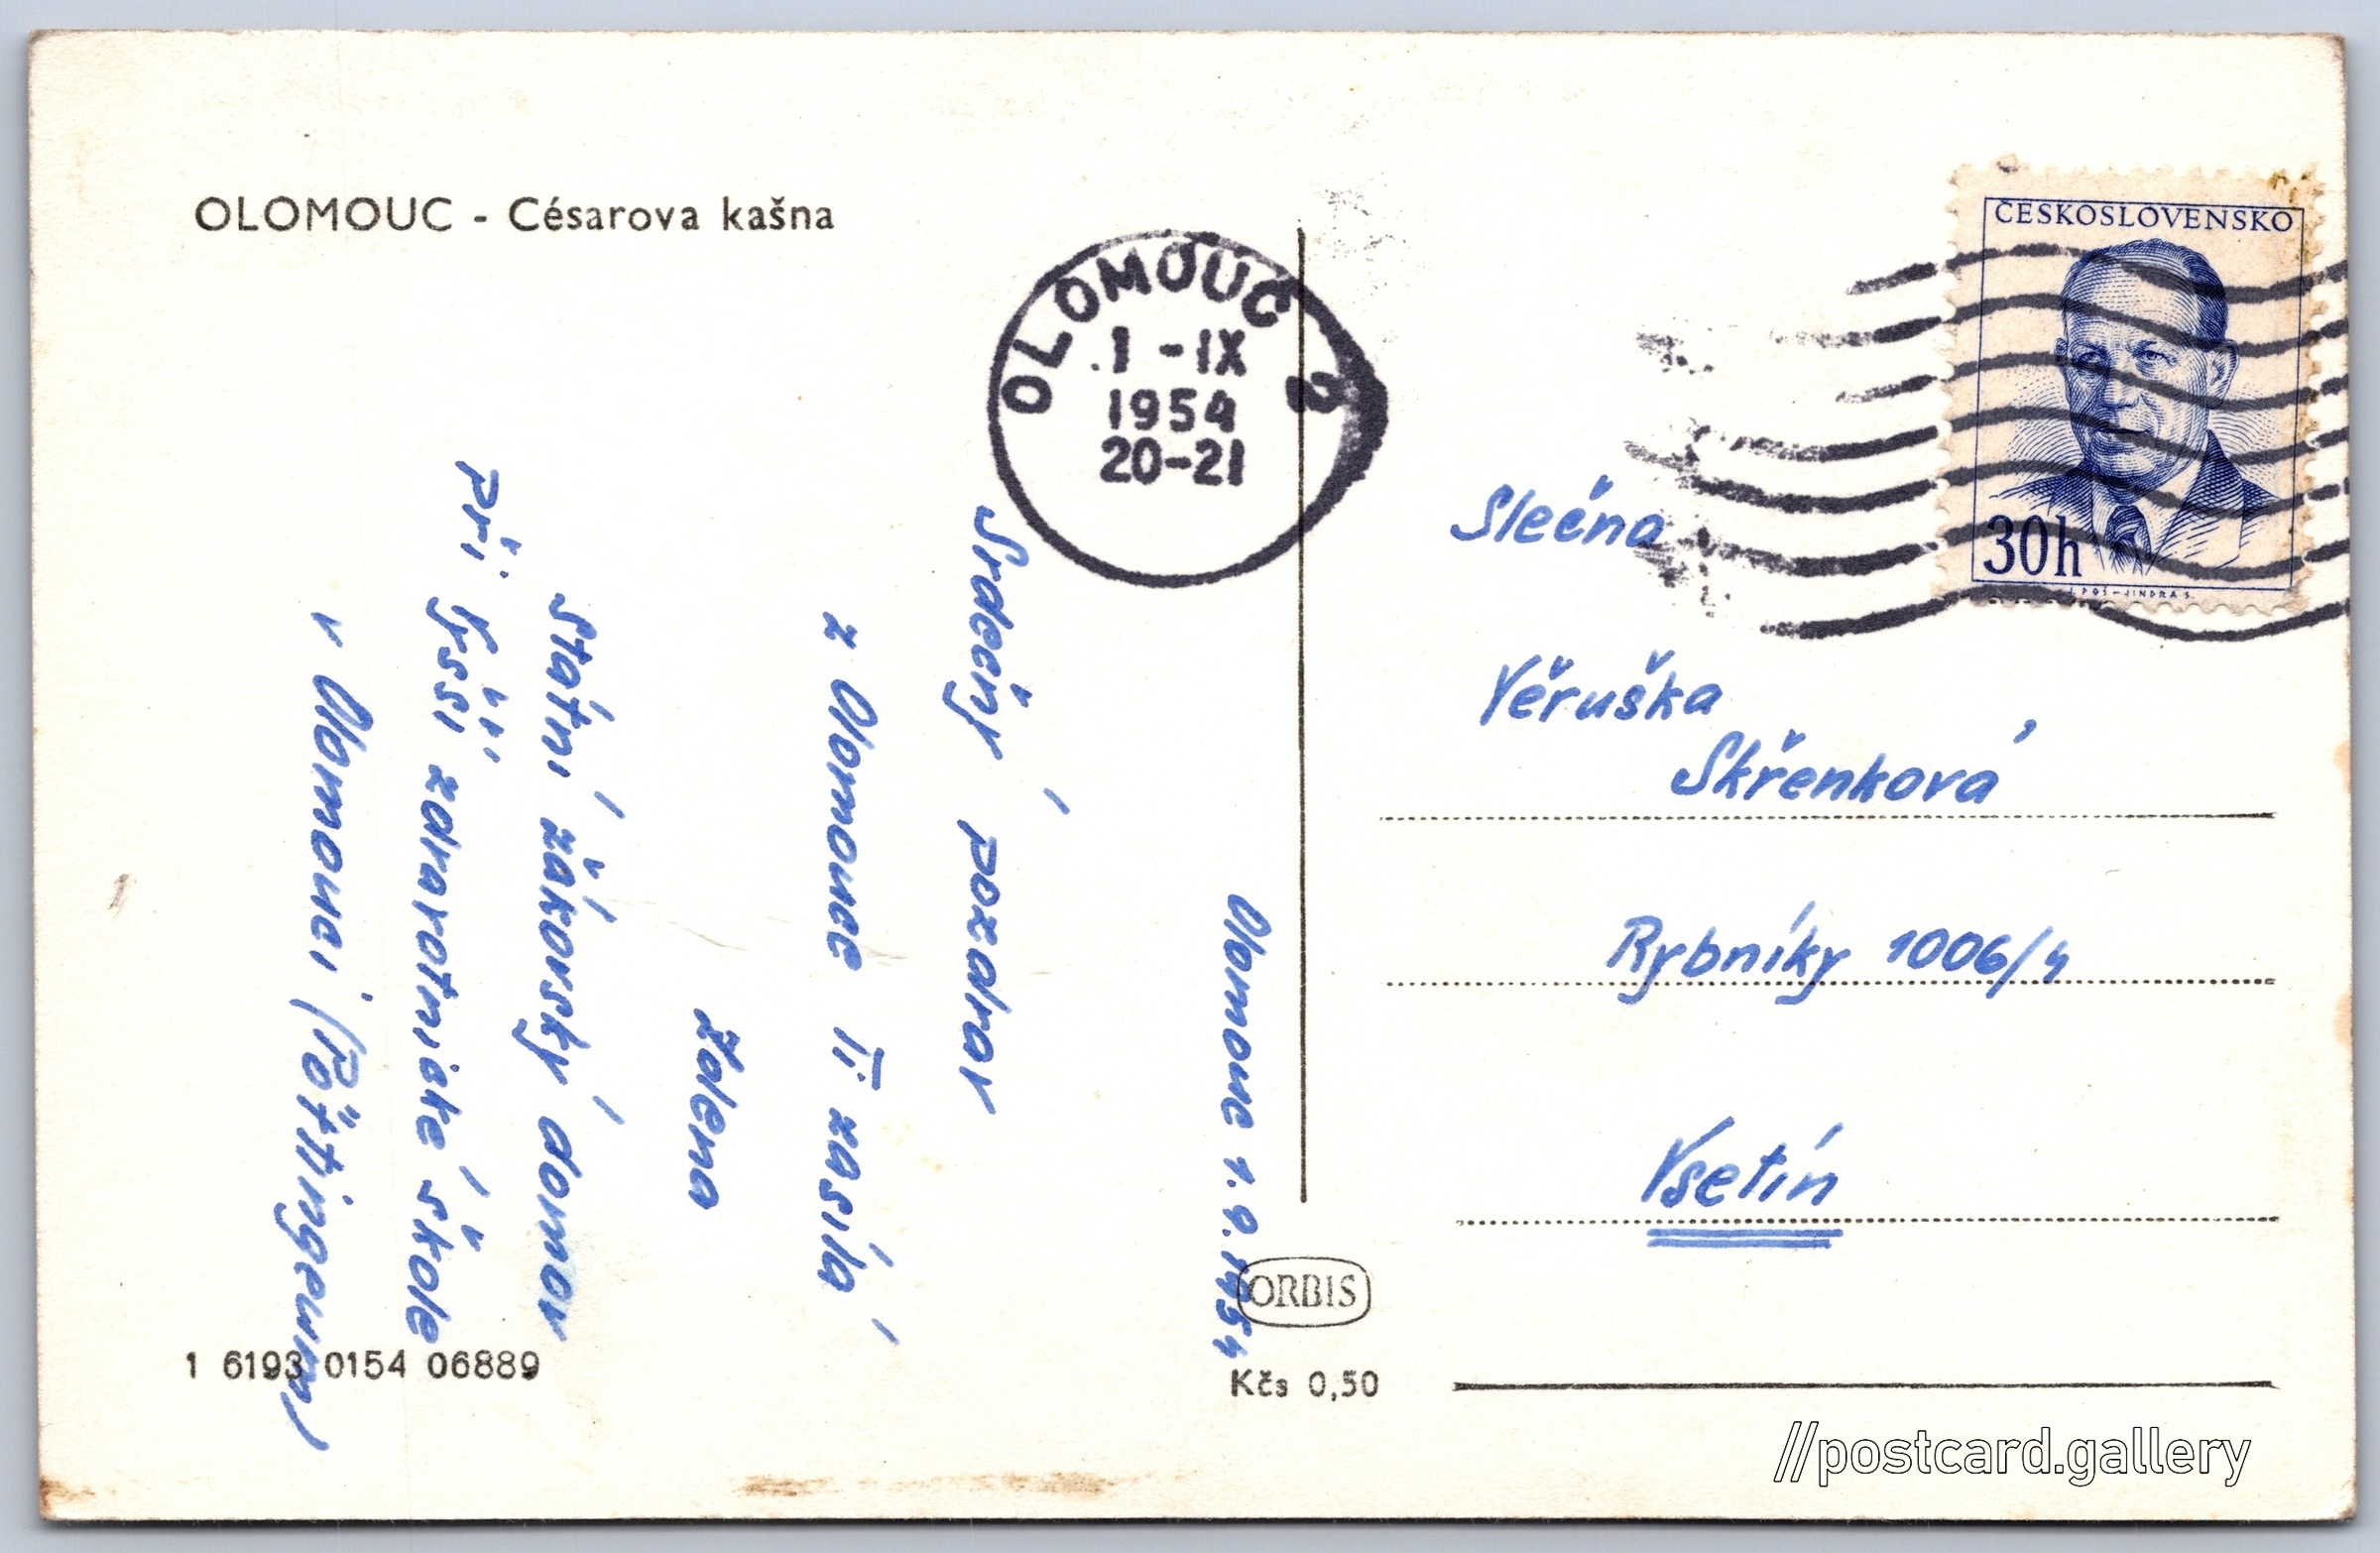 OLOMOUC - Césarova kašna
OLOMOUC 3
1 -IX
1954
20-21
ČESKOSLOVENSKO
30h
Olomouc 1.9.1954
Srdečný pozdrav
z Olomouce Ti zasílá
Zdena
Státní žákovský domov
při Vyšší zdravotnické škole
v Olomouci (Pöttingeum)
Slečna
Věruška
Skřenková,
Rybníky 1006/4
Vsetín
ORBIS
Kčs 0,50
1 6193 0154 06889
//postcard.gallery